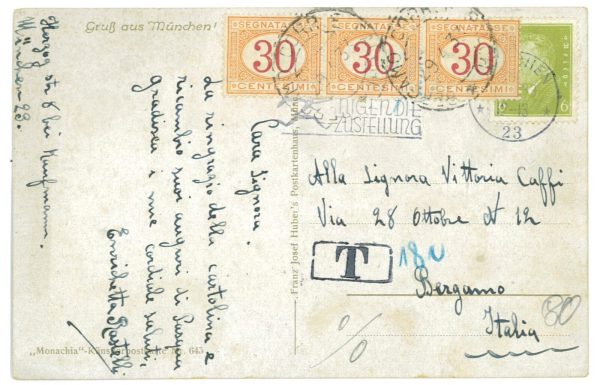 Gruß aus München!
Herzog str 8 bei Kaufmann.
München 23.
Cara Signora.
La ringrazio della cartolina e
ricambio suoi auguri di Pasqua
gradisca i miei cordiali saluti.
Enrichetta
"Monachia"-Künstlerpostkarte Nr. 643
Franz Josef Huber's Postkartenhaus, München
SEGNATASSE
30
CENTESIMI
SEGNATASSE
30
CENTESIMI
SEGNATASSE
30
CENTESIMI
6
ZUSTELLUNG
23
Alla Signora Vittoria Caffi
Via 28 Ottobre N 12
T
180
Bergamo
Italia
80